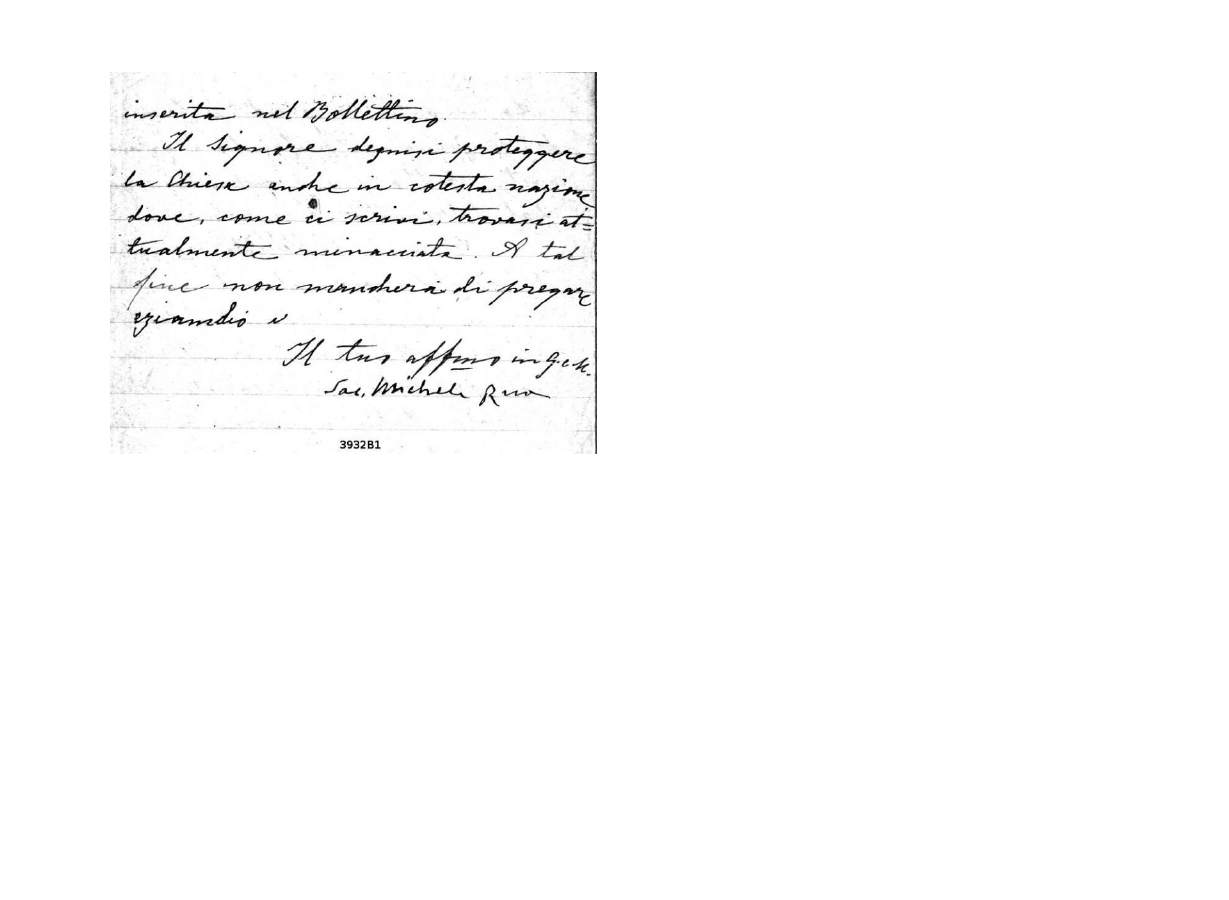 inserita nel Bollettino.
Il Signore degnisi proteggere
la Chiesa anche in cotesta nazione
dove, come ci scrivi, trovasi at=
tualmente minacciata. A tal
fine non mancherà di pregare
eziandio
Il tuo affmo in G. e M.
Sac. Michele Rua
3932B1